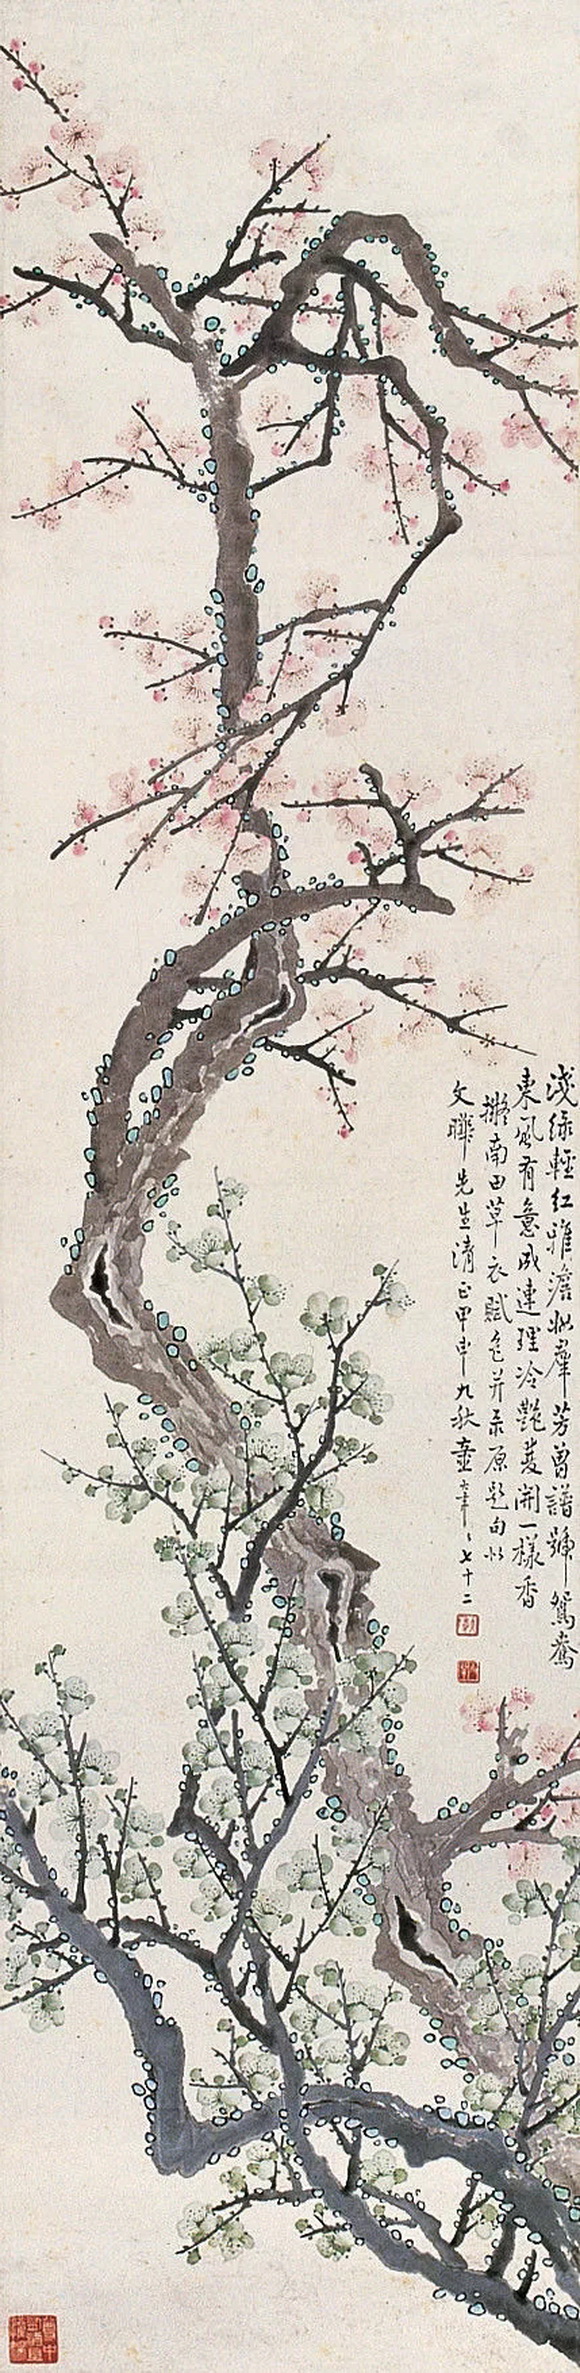 淺綠輕紅雅澹妝羣芳曾譜號鴛鴦
東風有意成連理冷艷爰開一樣香
擬南田草衣賦色并录原題句似
文驊先生清正甲申九秋 年七十二